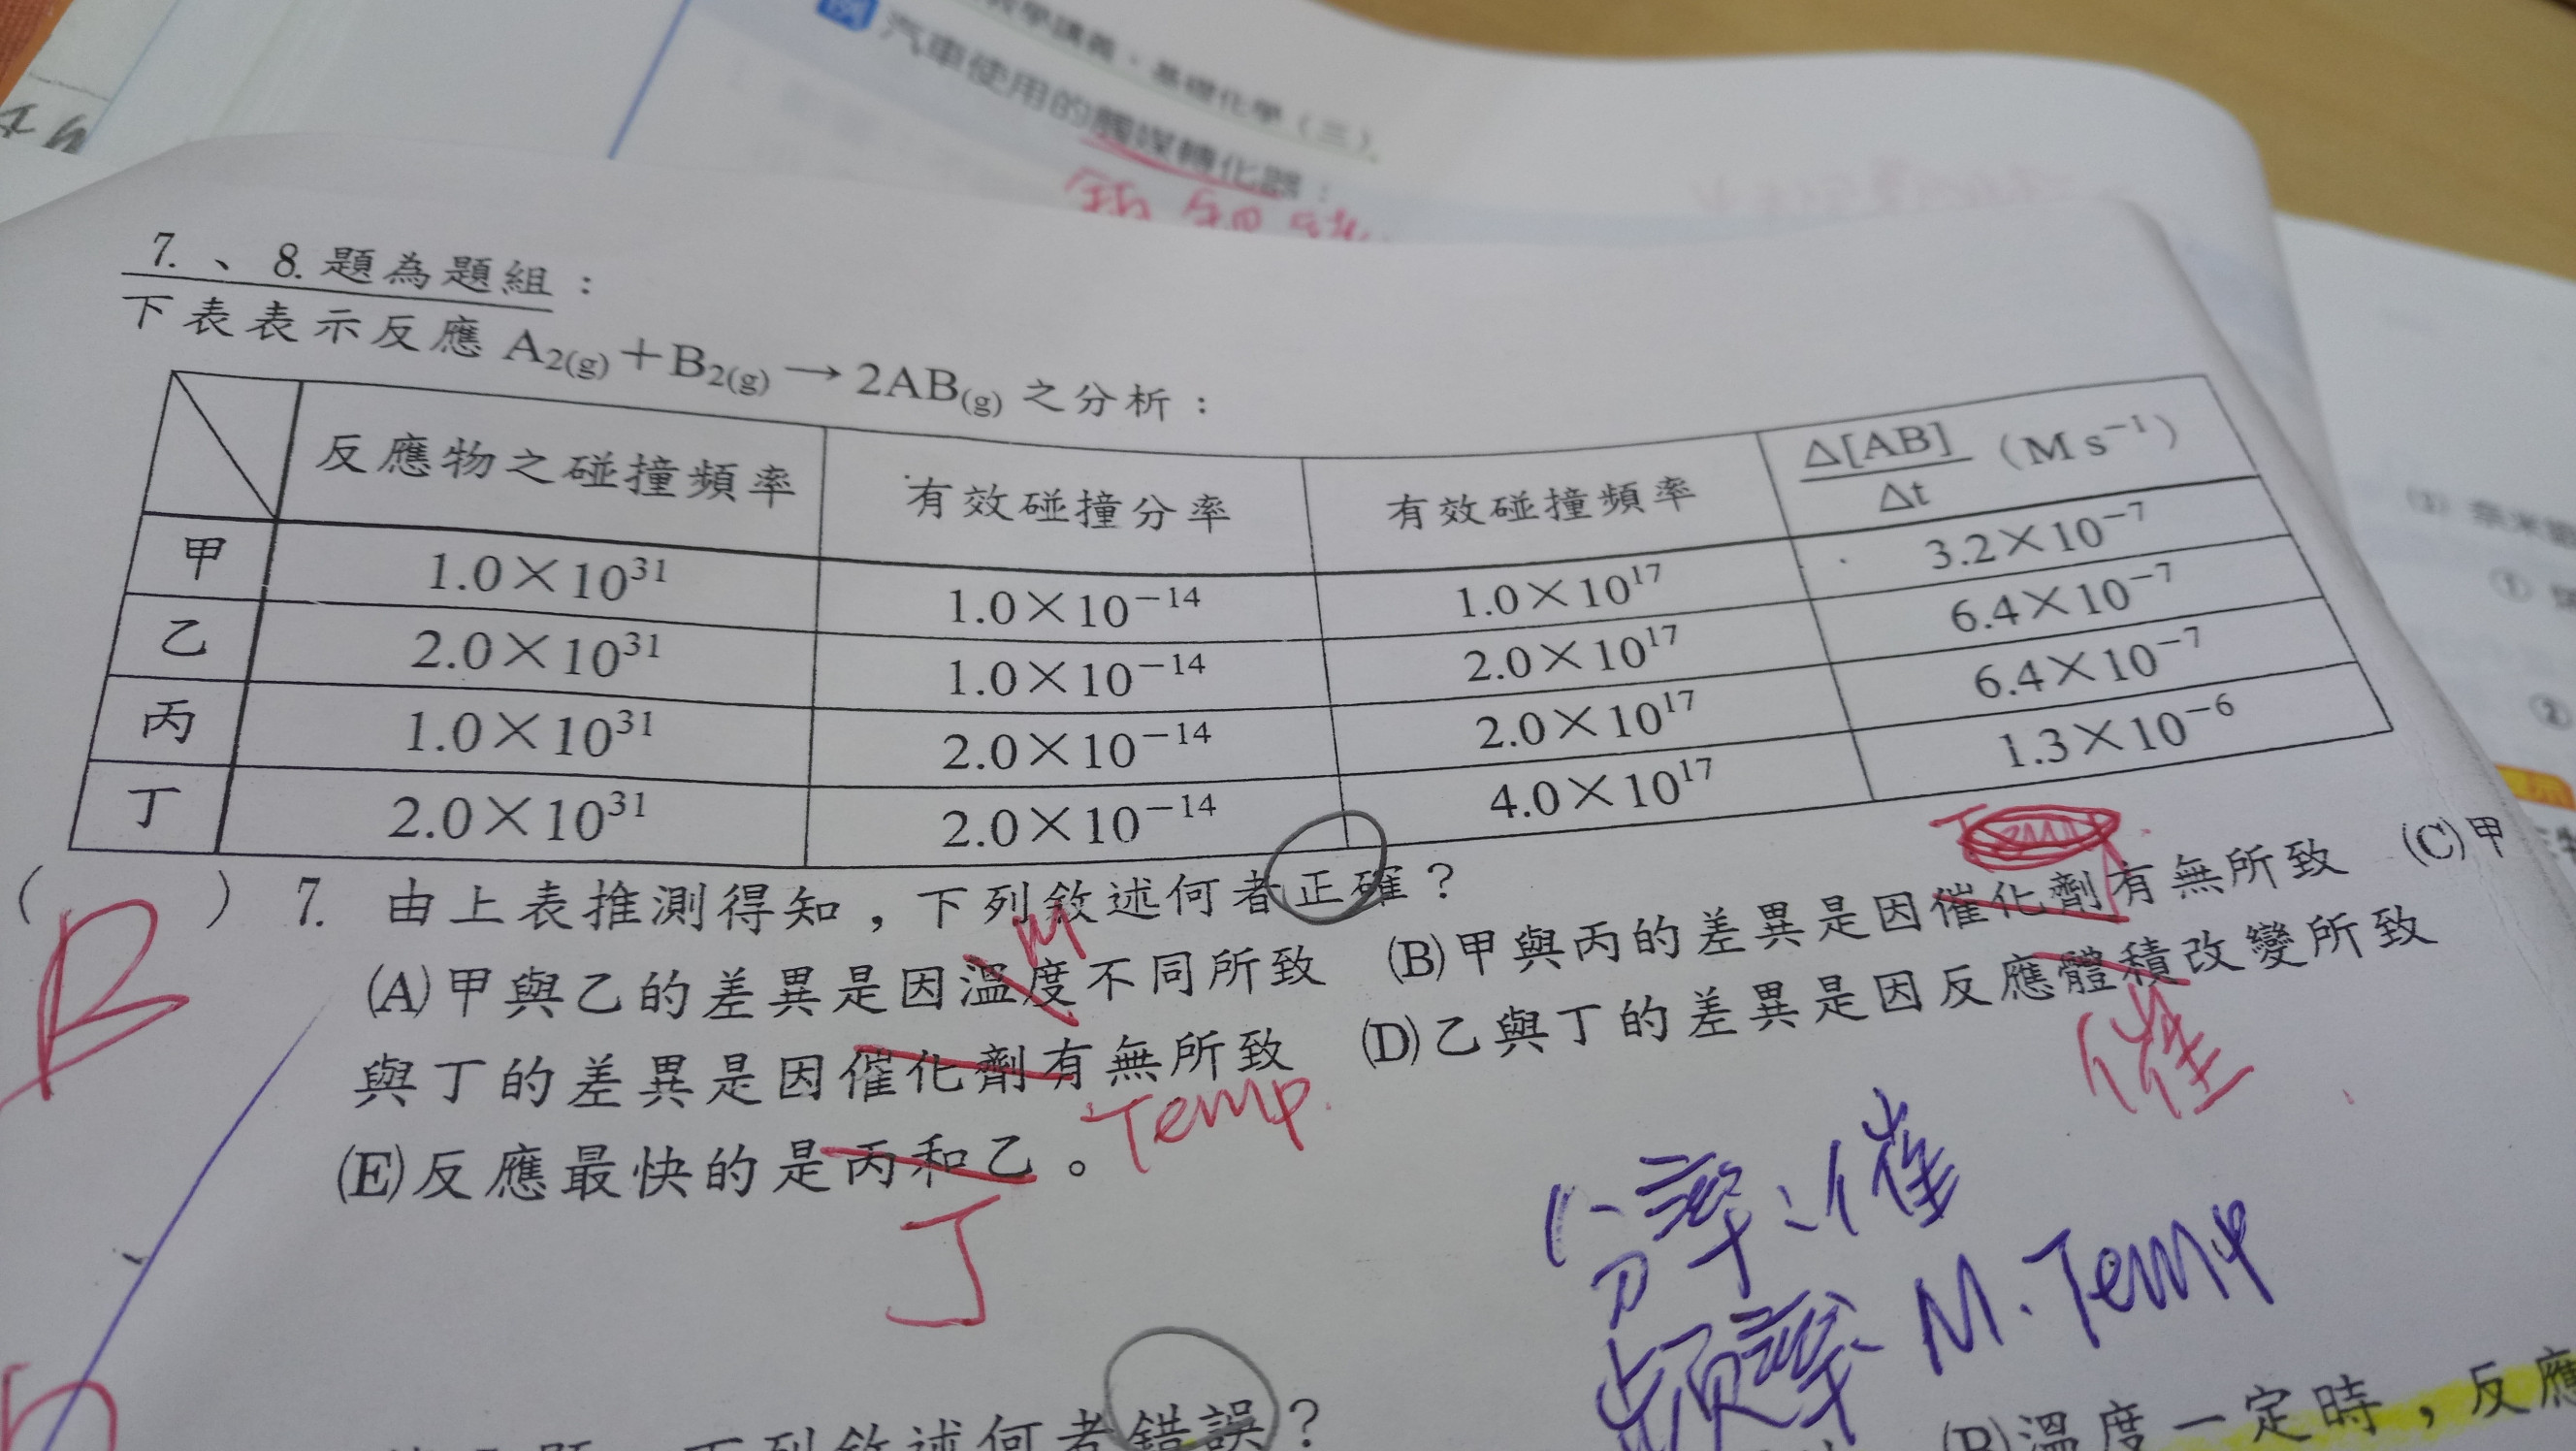 教學講義．基礎化學（三）
例 汽車使用的觸媒轉化器：
7.、8.題為題組：
下表表示反應 A2(g)＋B2(g)→2AB(g) 之分析：
反應物之碰撞頻率 有效碰撞分率 有效碰撞頻率 Δ[AB]/Δt （M s−1）
甲 1.0×10^31 1.0×10^−14 1.0×10^17 3.2×10^−7
乙 2.0×10^31 1.0×10^−14 2.0×10^17 6.4×10^−7
丙 1.0×10^31 2.0×10^−14 2.0×10^17 6.4×10^−7
丁 2.0×10^31 2.0×10^−14 4.0×10^17 1.3×10^−6
（ B ）7. 由上表推測得知，下列敘述何者正確？
M
(A)甲與乙的差異是因溫度不同所致 (B)甲與丙的差異是因催化劑有無所致 (C)甲
與丁的差異是因催化劑有無所致 (D)乙與丁的差異是因反應體積改變所致
Temp. 催
(E)反應最快的是丙和乙。
丁
分率：催
頻率 M. Temp
下列敘述何者錯誤？
(B)溫度一定時，反應